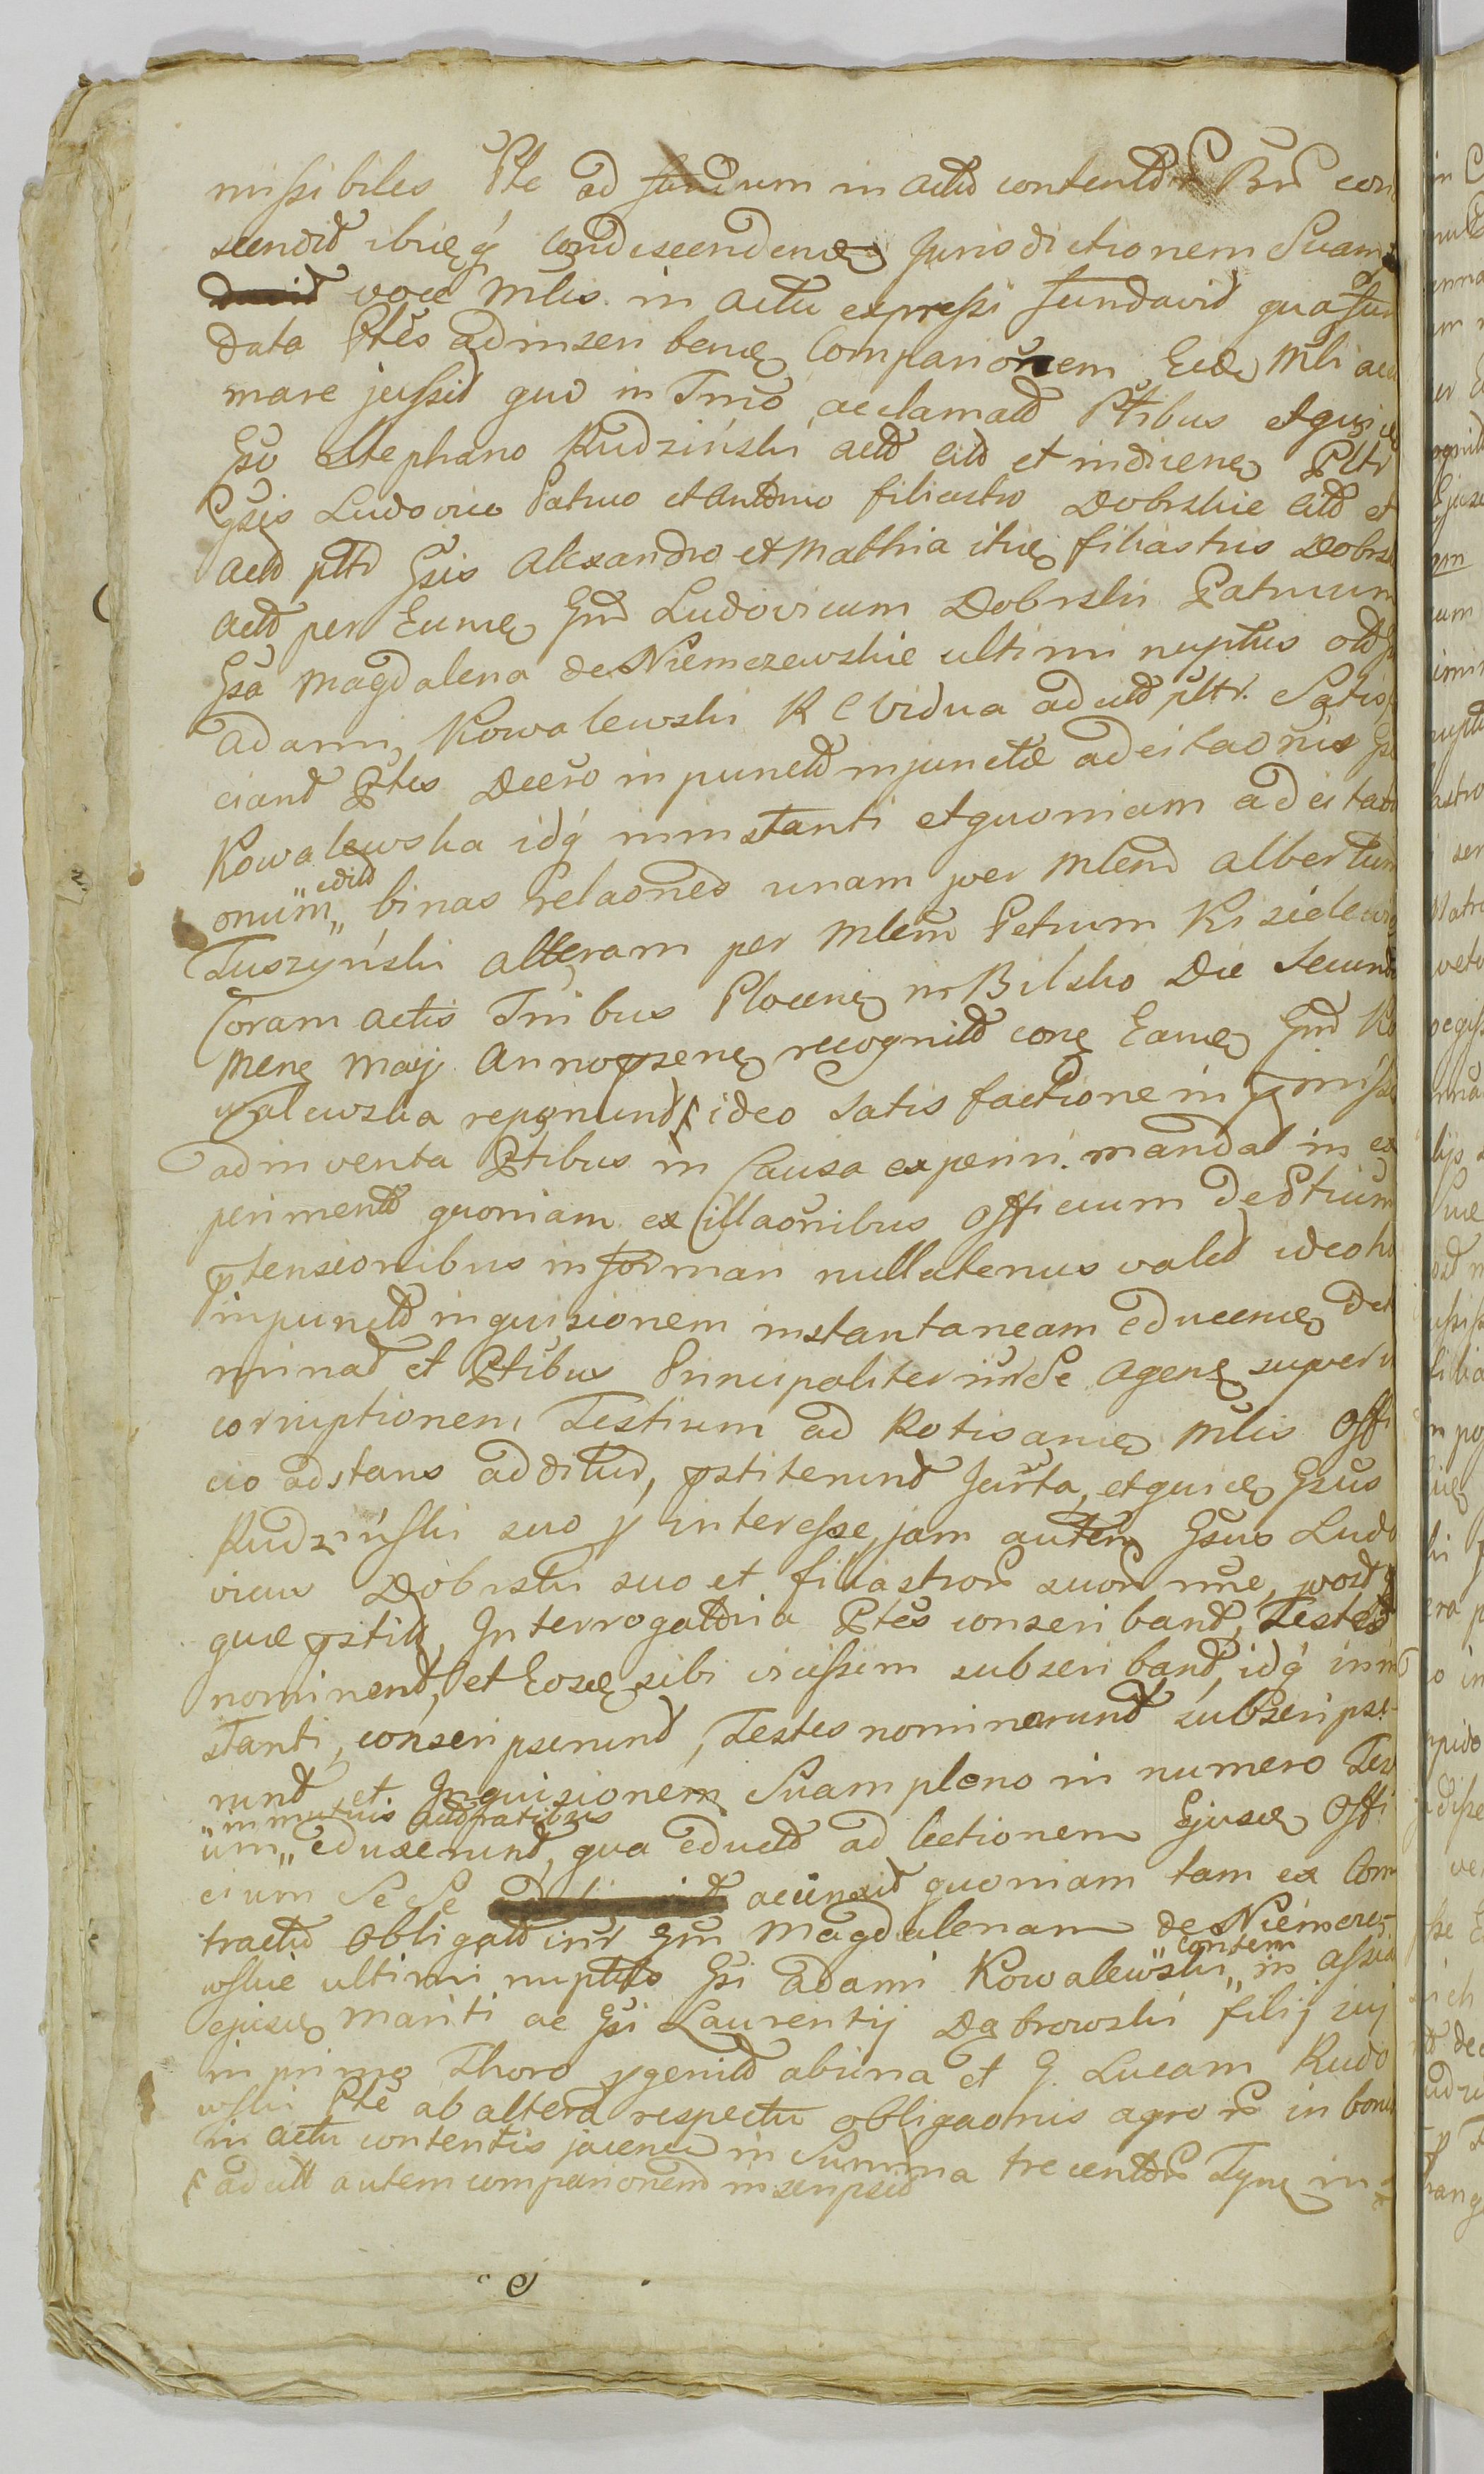 missibiles Pte ad fundum in actu content Br con
scendit ibiq condescenden Jurisdictionem Suam
voce Mlis in actu expressi fundavit qua fun
data Ptes ad inscriben Comparionem Eid Mli acla
mare jussit quo in Tmo acclamat Ptibus et quid
Gso Stephano Rudzinski act cit et inducen Pltr
Gsis Ludovico Patruo et Antonio filiastro Dobrskie cit et
act pltr Gsis Alexandro et Mathia itid filiastris Dobrski
act per Eund Gnd Ludovicum Dobrski Patruum
Gsa Magdalena de Niemczewskie ultimi nuptus olt G
Adami Kowalewski R C vidua ad cit pltr. Satisf
ciand Ptes Decro in punct injunctæ adcitaonis Gs
Kowalewska idq inin stanti et quoniam adcitao
onum „edit„ binas relaones unam per Mlem Albertum
Tuszyński alteram per Mlem Petrum Kisielewi
Coram actis Tribus Plocen in Bilsko Die Secunda
Men Maij Anno psen recognit con Eand Gnd Ko
walewska reponunt ideo satisfactione in pmissis
adinventa Ptibus in Causa experiri mandat in ex
periment quoniam ex illaonibus officium de Ptium
ptensionibus informari nullatenus valet ideo ho
in punct inquisionem instantaneam educend det
minat et Ptibus Principaliter inr Se agen super in
corruptionem Testium ad Rotis and Mlis Offi
cio adstans addit, pstiterunt Jurta, et quid Gsus
Rudzinski suo p interesse, jam autem Gsus Ludo
vicus Dobrski suo et filiastror suor nne, post
que pstit, Interrogatoria Ptes conscribant, Testes
nominent, et Eosd sibi vicissim subscribant, idq inin
stanti, conscripserunt, Testes nominarunt subscripse-
runt et Inquisionem Suam pleno in numero Test
ium „in mutuis aud fratibus„ eduxerunt, qua educt ad lectionem Ejusd Offi
cium Se Se accinxit quoniam tam ex Con
tractu obligat inr Gm Magdalenam de Niemcze-
wskie ultimi nuptus Gsi Adami Kowalewski „conten„ in assia
ejusd Mariti ac Gsi Laurentij Dąbrowski filij suj
in primo Thoro pgenit ab una et G. Lucam Rudo
wski Pte ab altera respectu obligaonis agror in bonis
in actu contentis jacen in Summa trecent Tyn in
ad cit autem comparionem inscripsit